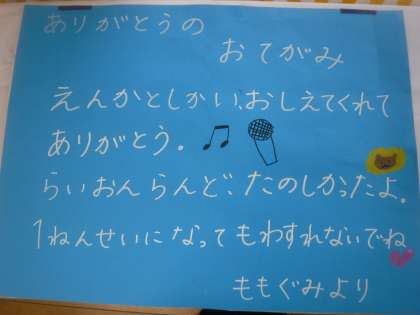 ありがとうの
おてがみ
えんかとしかい、おしえてくれて
ありがとう。
らいおんらんど、たのしかったよ。
1ねんせいになってもわすれないでね
ももぐみより